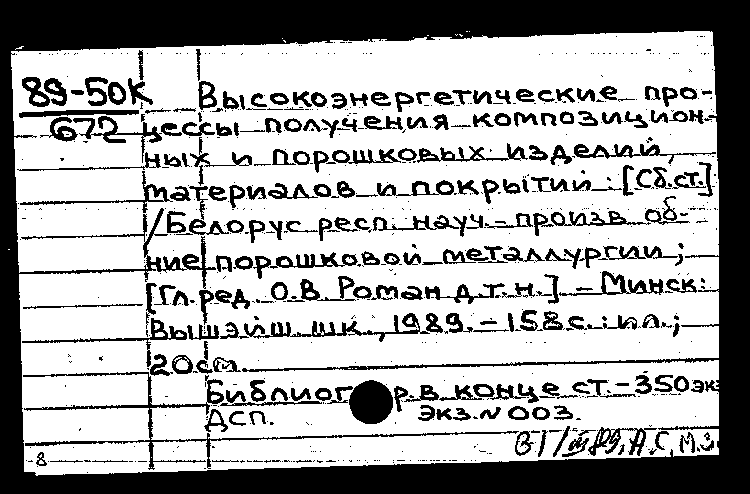 89-50К Высокоэнергетические про-
672 цессы получения композицион-
ных и порошковых изделий,
материалов и покрытий : [Сб.ст.]
/Белорус респ. науч.-произв об-
ние порошковой металлургии ;
[Гл.ред. О.В. Роман д.т.н.] - Минск:
Вышэйш. шк., 1989. - 158с. : ил. ;
20см.
Библиогр. в конце ст. - 350 экз
ДСП. Экз.N 003.
8